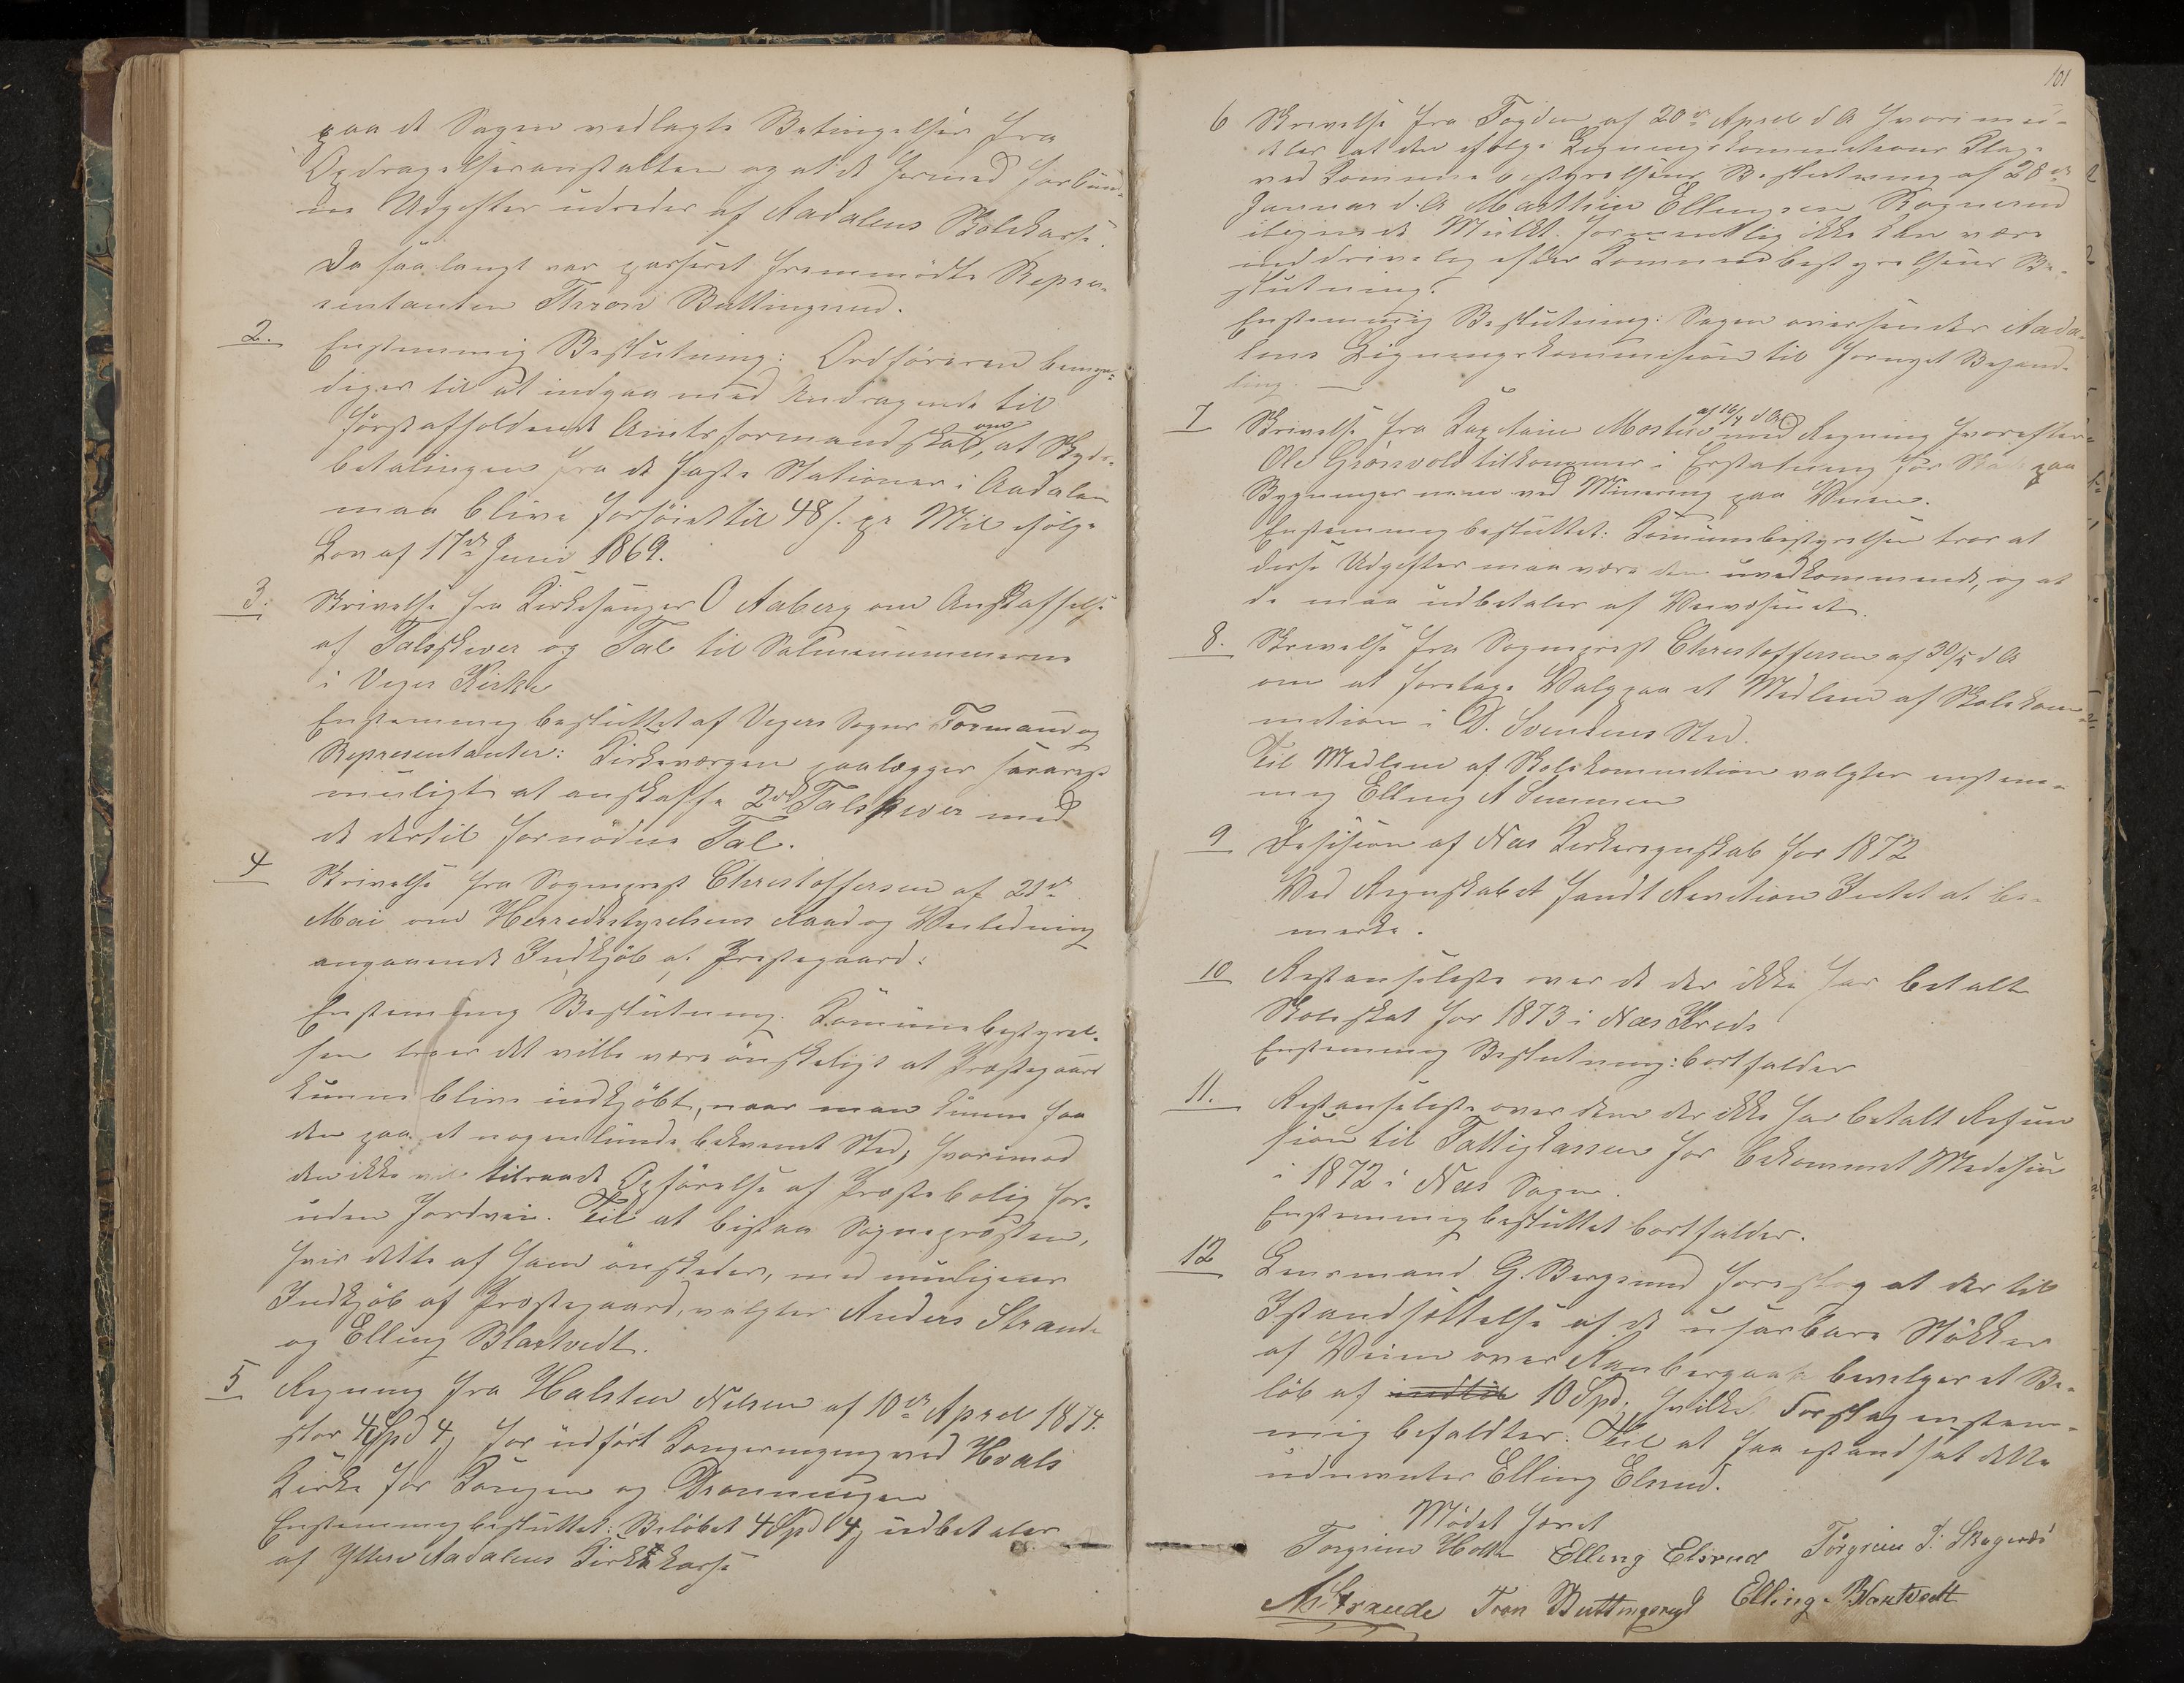 paa de Sagen vedlagte Betingelser fra
Opdragelsesanstalten og at de hermed forbun-
ne Udgifter udredes af Aadalens Skolekasse.
Da saa langt var passeret fremmødte Repræ-
sentanten Thron Buttingsrud.
2. Enstemmig Beslutning: Ordføreren bemyn-
diges til at indgaa med Andragende til
førstafholdende Amtsformandskab, om at Skyds-
betalingen fra de faste Stationer i Aadalen
maa blive forhøiet til 48 s. pr Mil ifølge
Lov af 17de Juni 1869.
3. Skrivelse fra Kirkesanger O Aaberg om Anskaffelse
af Talskiver og Tal til Salmenummerne
i Veger Kirke
Enstemmig besluttet af Vegers Sogns Formænd og
Repræsentanter: Kirkeværgen paalægges snarest
muligt at anskaffe 2de Talskiver med
de dertil fornødne Tal.
4 Skrivelse fra Sogneprest Christoffersen af 21de
Mai om Herredsstyrelsens Raad og Veiledning
angaaende Indkjøb af Prestegaard:
Enstemmig Beslutning. Kommunebestyrel-
sen troer det ville være ønskeligt at Præstegaard
kunne blive indkjøbt, naar man kunne faa
den paa et nogenlunde bekvemt Sted, hvorimod
den ikke vil tilraade Opførelse af Præstebolig for-
uden Jordvei. Til at bistaa Sognepræsten,
hvis dette af ham ønskedes, med muligens
Indkjøb af Præstegaard, valgtes Anders Strande
og Elling Blakstvedt.
5 Regning fra Halsten Nilsen af 10de April 1874.
stor 4 Spd 4 s for udført Kongeringning ved Hvals
Kirke for Kongen og Dronningen
Enstemmig besluttet: Beløbet 4 Spd 4 s udbetales
af Ytters Aadalens Kirkekasse
101
6 Skrivelse fra Fogden af 20de April d A hvori med-
deles at den ifølge Ligningskommissions Klage
ved Kommunebestyrelsens Beslutning af 28de
Januar d. A Matthias Ellingsen Rognerud
ilignede Mulkt formentlig ikke kan være
inddrivelig efter Kommunebestyrelsens Be-
slutning.
Enstemmig Beslutning: Sagen oversendes Aada-
lens Ligningskommission til fornyet Behand-
ling.
7 Skrivelse fra Kaptein Mostue af 16/4 d A med Regning hvorefter
Ole Grønvold tilkommer i Erstatning for Skade paa
Bygninger m.m. ved Minering paa Veien.
Enstemmig besluttet: Kommunebestyrelsen tror at
disse Udgifter maa være den uvedkommende, og at
de maa udbetales af Veivæsenet.
8. Skrivelse fra Sogneprest Christoffersen af 30/5 d A
om at foretage Valg paa et Medlem af Skolekom-
mission i O. Svendsens Sted.
Til Medlem af Skolekommission valgtes enstem-
mig Elling A Semmen
9 Desision af Næs Kirkeregnskab for 1872
Ved Regnskabet fandt Revision Intet at be-
mærke.
10 Restanseliste over de der ikke har betalt
Skoleskat for 1873 i Næs Kreds
Enstemmig Beslutning: bortfalder
11. Restanseliste over dem der ikke har betalt Refun
sion til Fattigkassen for bekommet Medesin
i 1872 i Næs Sogn.
Enstemmig besluttet bortfalder.
12 Lensmand G. Bergsund foreslog at der til
Istandsættelse af de ufarbare Stykker
af Veien over Ranbergaas bevilges et Be-
løb af 10 Spd, hvilket Forslag enstem-
mig befaldtes. Til at faa istandsat dette
udnævntes Elling Elsrud.
Mødet hævet
Torgrim Holte Elling Elsrud Torgrim T. Skagnæs
A. Strande Tron Buttingsrud Elling Blakstvedt